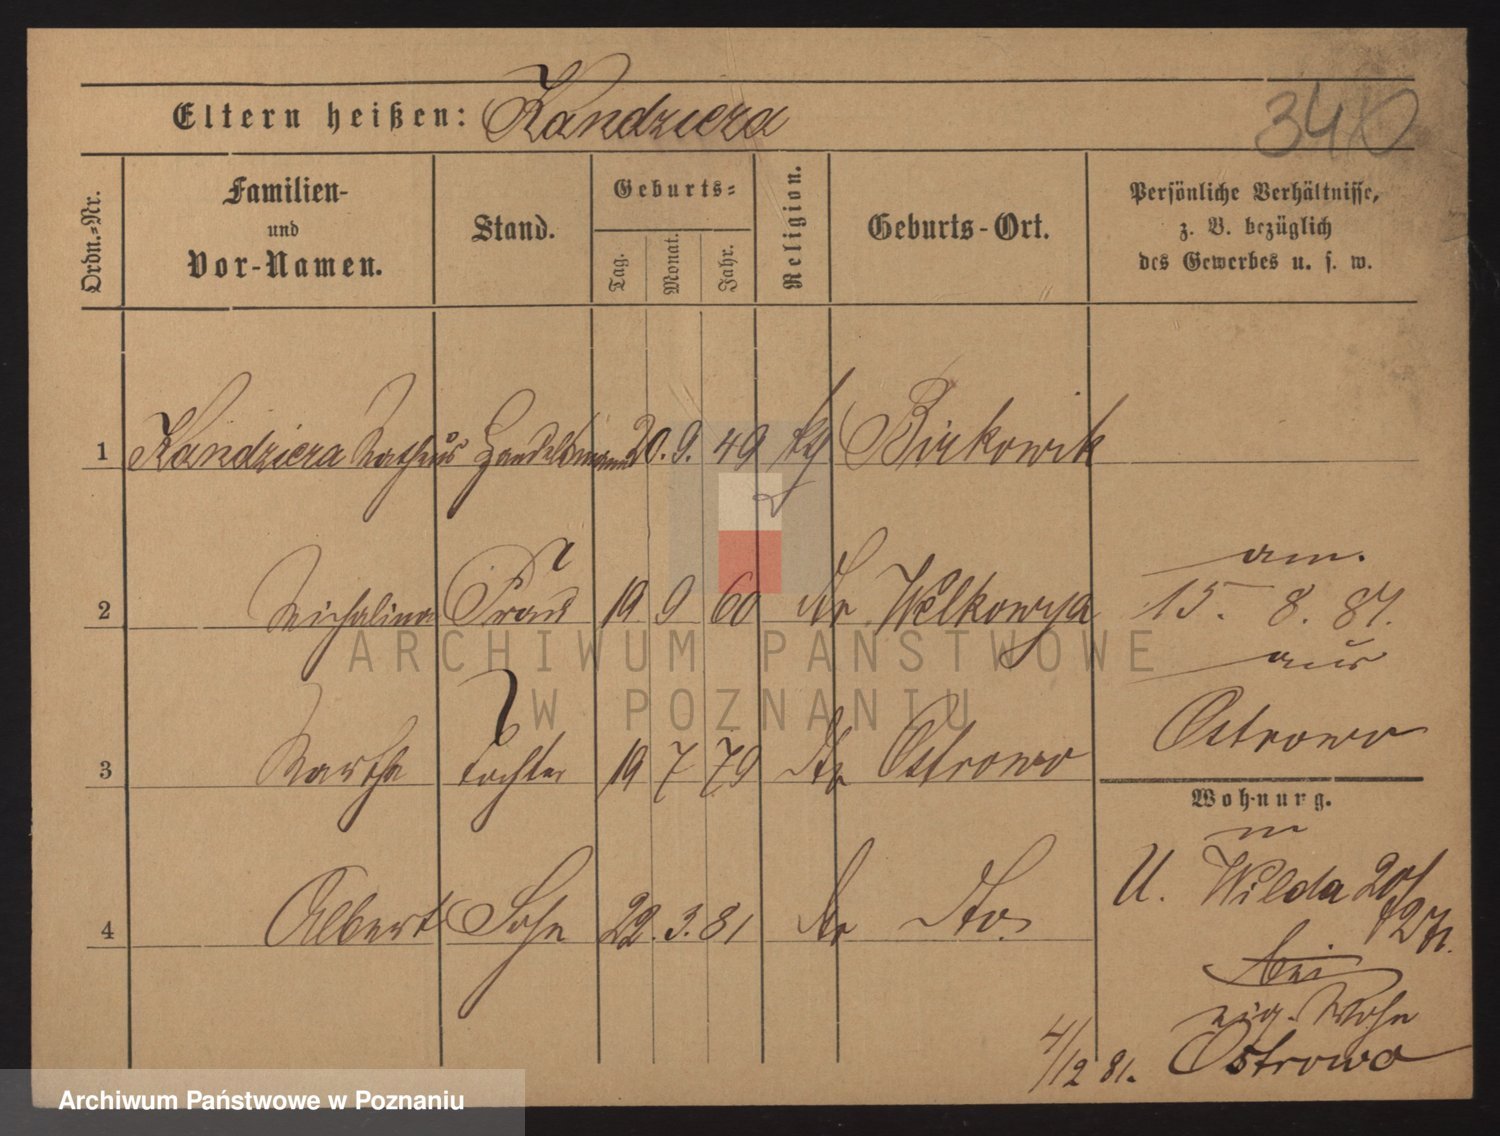 Eltern heißen: Kandziera
340
Ordn.-Nr.
Familien-
und
Vor-Namen.
Stand.
Geburts-
Tag.
Monat.
Jahr.
Religion.
Geburts-Ort.
Persönliche Verhältnisse,
z. B. bezüglich
des Gewerbes u. s. w.
1 Kandziera Matheus Handelsmann 20. 9. 49 kth Birkowik
2 Michalina Frau 19 9 60 do Wilkowya
am
15. 8. 81.
aus
Ostrowo
3 Martha Tochter 19 7 79 do Ostrowo
Wohnung.
in
U. Wilda 20/
4 Albert Sohn 22. 3. 81 do do.
bei
eig. Wohn
4/12 81. Ostrowo
ARCHIWUM PAŃSTWOWE
W POZNANIU
Archiwum Państwowe w Poznaniu